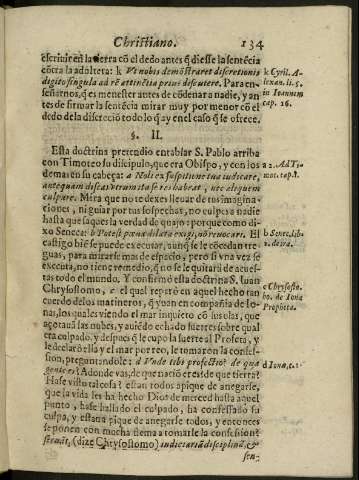 Christiano. 134
escriuir en la tierra cõ el dedo antes q̃ diesse la sentẽcia
cõtra la adultera: k Vt nobis demõstraret discretionis
digito singula ad rẽ attinẽtia prius discutere. Para en-
señarnos, q̃ es menester antes de cõdenar a nadie, y an
tes de firmar la sentẽcia mirar muy por menor cõ el
dedo de la discreciõ todo lo q̃ ay en el caso q̃ se ofrece.
k Cyril. A-
lexan. li. 5.
in Ioannem
cap. 16.
§. II.
Esta doctrina pretendio entablar S. Pablo arriba
con Timoteo su dicipulo, que era Obispo, y con los
demas en su cabeça: a Noli ex suspitione tua iudicare,
antequam discas verum ita se res habeat, nec aliquem
culpare. Mira que no te dexes lleuar de tus imagina-
ciones, ni guiar por tus sospechas, no culpes a nadie
hasta que saques la verdad de quajo: porque como di-
xo Seneca: b Potest pœna dilata exigi, nõ reuocari. El
castigo biẽ se puede executar, aunq̃ se le cõcedan tre-
guas, para mirarse mas de espacio, pero si vna vez se
executa, no tiene remedio, q̃ no se le quitarà de acues-
tas todo el mundo. Y confirmò esta doctrina S. Iuan
Chrysostomo, c el qual reparò en aquel hecho tan
cuerdo de los matineros, q̃ yuan en compañia de Io-
nas, los quales viendo el mar inquieto cõ sus olas, que
açotauã las nubes, y auiẽdo echado suertes sobre qual
era culpado, y despues q̃ le cupo la suerte al Profeta, y
le declarò ella y el mar por reo, le tomaron la confes-
sion, preguntandole: d Vnde tibi profectio? de qua
gente es? Adonde vas, de que nació eres, de que tierra?
Hase visto tal cosa? estan todos apique de anegarse,
que la vida les ha hecho Dios de merced hasta aquel
punto, hase hallado el culpado, ha confessado su
culpa, y estan a pique de anegarse todos, y entonces
se ponen con mucha flema a tomarle la confession?
(dize Chrysostomo) indictariã disciplinã, &
a Ad Ti-
mot. cap. 1.
b Senec. lib.
2. de ira.
c Chrysosto
mo. de Iona
Propheta.
d Iona, c. 1.
sen-